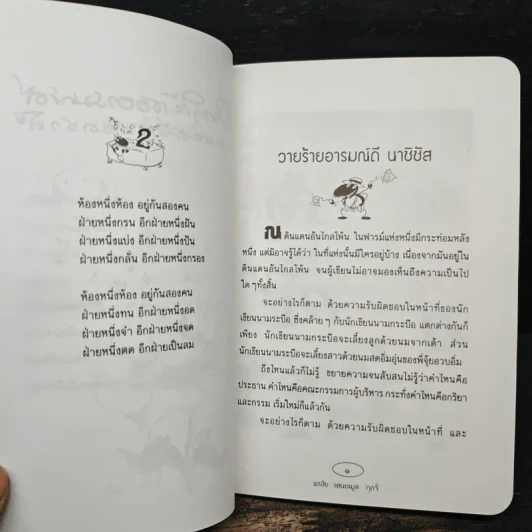 2
ห้องหนึ่งห้อง อยู่กันสองคน
ฝ่ายหนึ่งกรน อีกฝ่ายหนึ่งฝัน
ฝ่ายหนึ่งแบ่ง อีกฝ่ายหนึ่งปัน
ฝ่ายหนึ่งกลั่น อีกฝ่ายหนึ่งกรอง
ห้องหนึ่งห้อง อยู่กันสองคน
ฝ่ายหนึ่งทน อีกฝ่ายหนึ่งอด
ฝ่ายหนึ่งจำ อีกฝ่ายหนึ่งจด
ฝ่ายหนึ่งตด อีกฝ่ายเป็นลม
วายร้ายอารมณ์ดี นาซิซัส
ณ ดินแดนอันไกลโพ้น ในฟาร์มแห่งหนึ่งมีกระท่อมหลัง
หนึ่ง แต่มิอาจรู้ได้ว่า ในที่แห่งนั้นมีใครอยู่บ้าง เนื่องจากมันอยู่ใน
ดินแดนอันไกลโพ้น จนผู้เขียนไม่อาจมองเห็นถึงความเป็นไป
ใดๆทั้งสิ้น
จะอย่างไรก็ตาม ด้วยความรับผิดชอบในหน้าที่ของนัก
เขียนนามกระบือ ซึ่งคล้ายๆ กับนักเขียนนามกระบือ แตกต่างกันก็
เพียง นักเขียนนามกระบือจะเลี้ยงลูกด้วยนมจากเต้า ส่วน
นักเขียนนามกระบือจะเลี้ยงสาวด้วยนมสดอิ่มอุ่นของพี่จุ้ยอวบอิ่ม
ถึงไหนแล้วก็ไม่รู้ ขยายความจนสับสนไม่รู้ว่าคำไหนคือ
ประธาน คำไหนคือคณะกรรมการผู้บริหาร กระทั่งคำไหนคือกริยา
และกรรม เริ่มใหม่ก็แล้วกัน
จะอย่างไรก็ตาม ด้วยความรับผิดชอบในหน้าที่ และ
๑